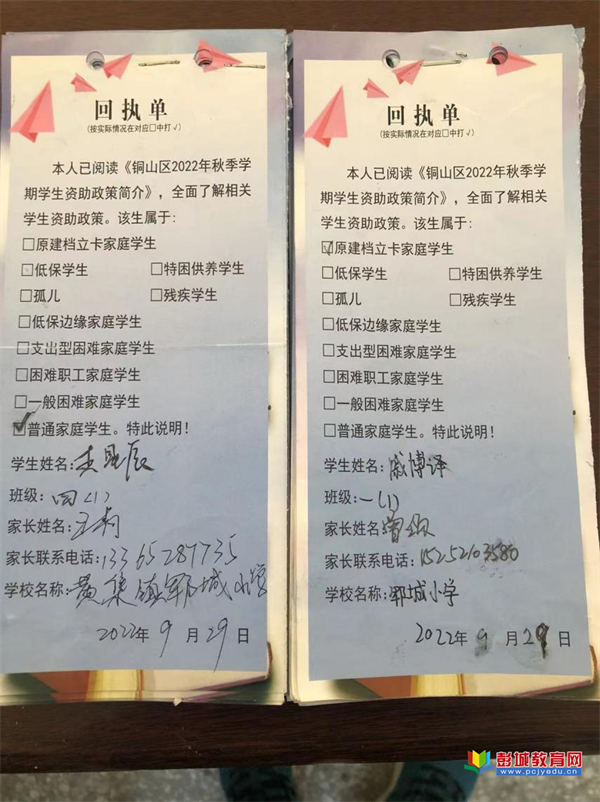 回执单
(按实际情况在对应□中打√)
本人已阅读《铜山区2022年秋季学
期学生资助政策简介》，全面了解相关
学生资助政策。该生属于:
□原建档立卡家庭学生
□低保学生 □特困供养学生
□孤儿 □残疾学生
□低保边缘家庭学生
□支出型困难家庭学生
□困难职工家庭学生
□一般困难家庭学生
☑普通家庭学生。特此说明！
学生姓名:
班级: 四(1)
家长姓名: 王莉
家长联系电话: 13365287735
学校名称: 黄集镇郓城小学
2022年 9 月 29 日
回执单
(按实际情况在对应□中打√)
本人已阅读《铜山区2022年秋季学
期学生资助政策简介》，全面了解相关
学生资助政策。该生属于:
☑原建档立卡家庭学生
□低保学生 □特困供养学生
□孤儿 □残疾学生
□低保边缘家庭学生
□支出型困难家庭学生
□困难职工家庭学生
□一般困难家庭学生
□普通家庭学生。特此说明！
学生姓名: 戚博译
班级: 一(1)
家长姓名:
家长联系电话: 15252103580
学校名称: 郓城小学
2022年 9 月 29 日
彭城教育网
www.pcjyedu.cn